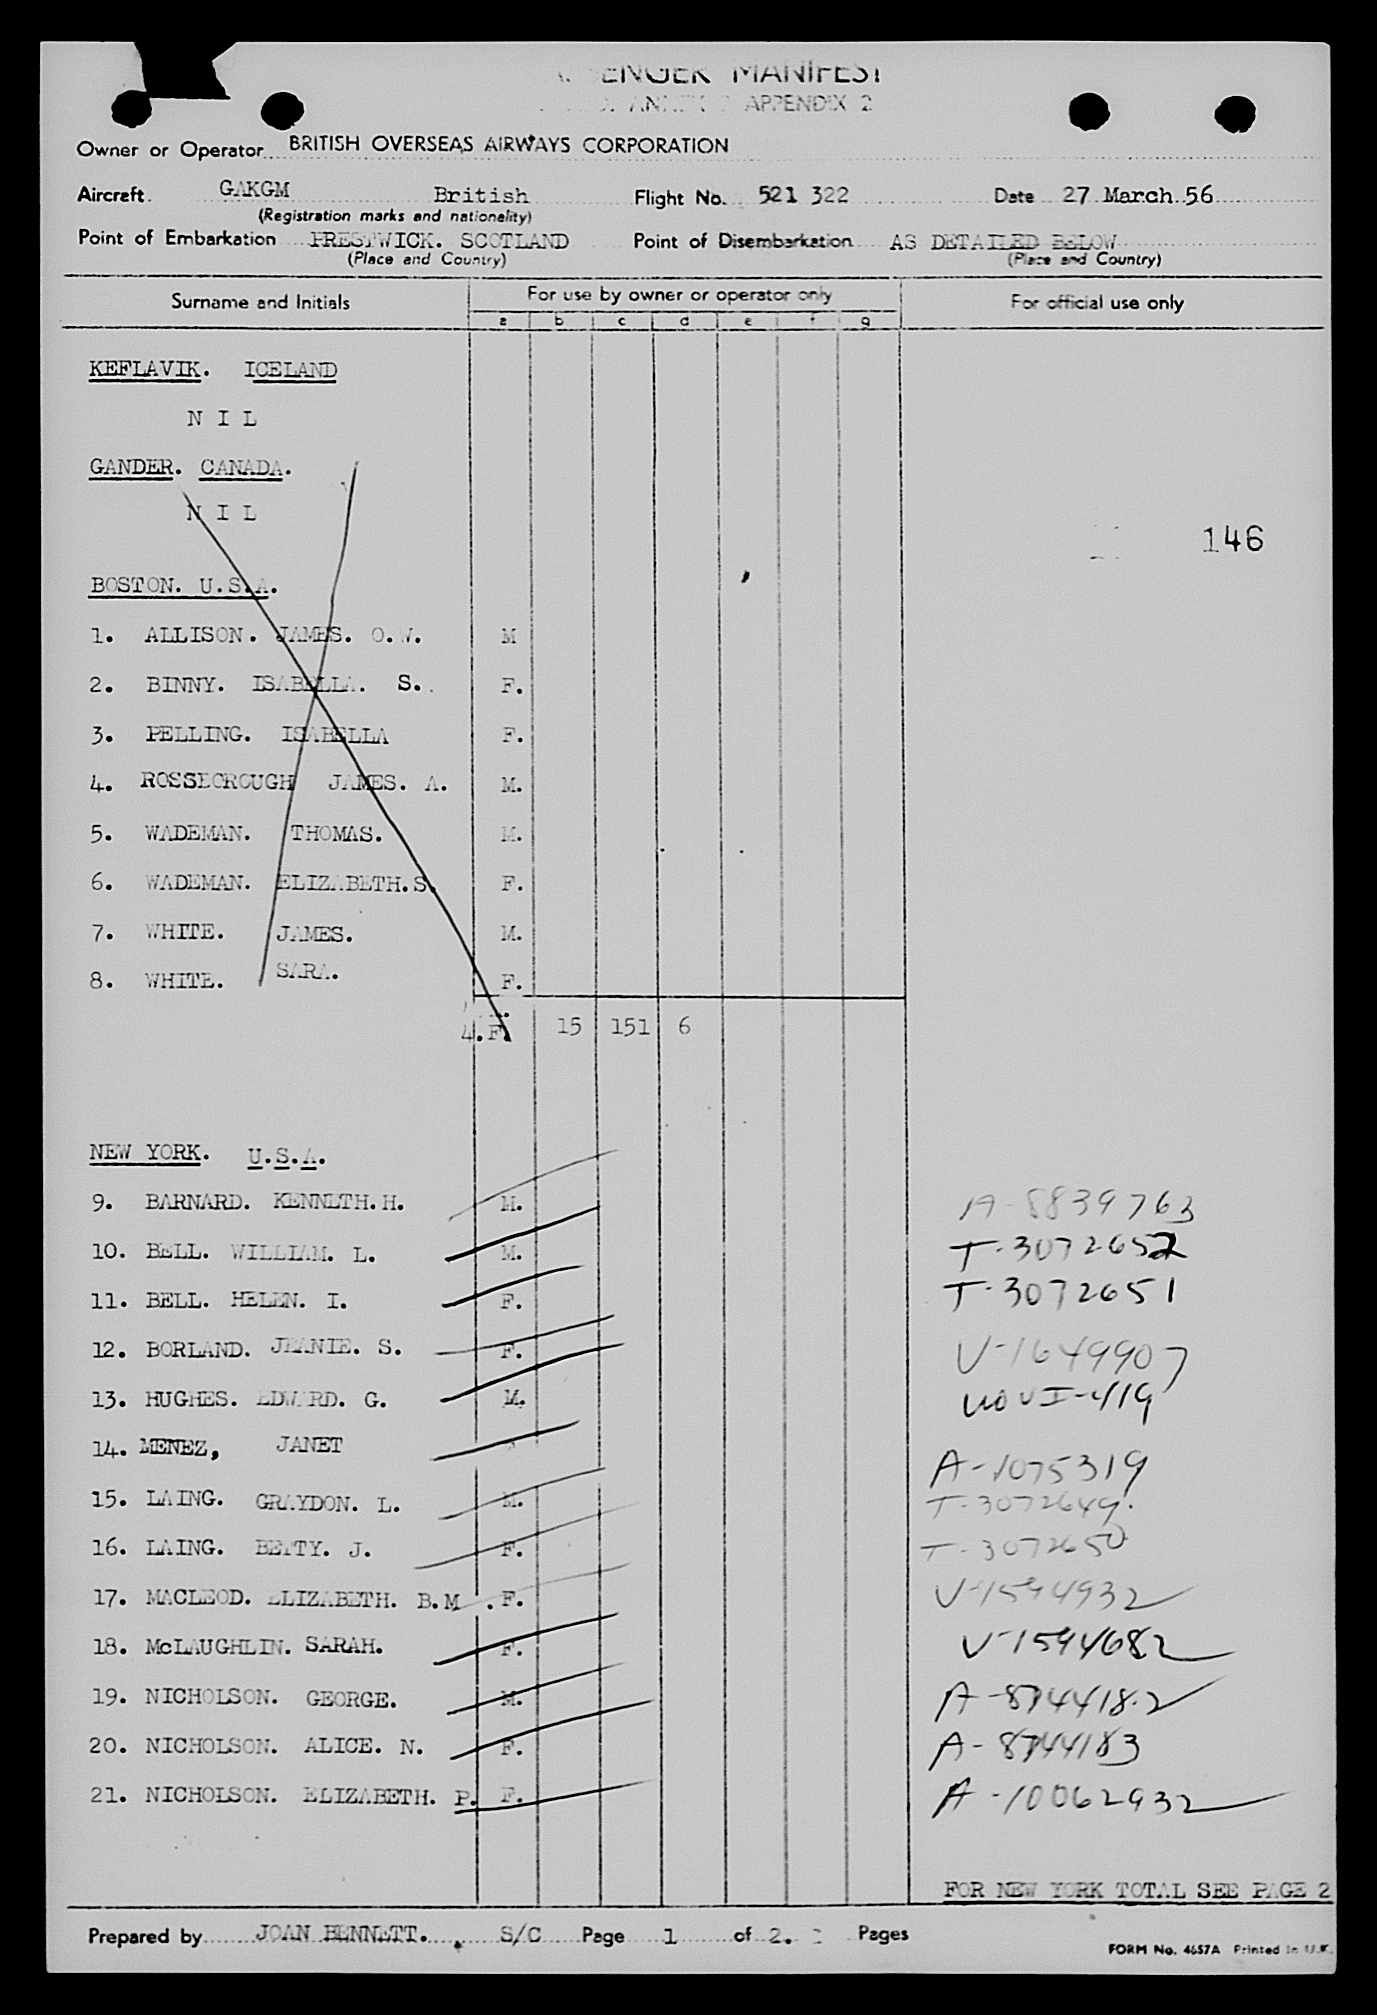 PASSENGER MANIFEST
APPENDIX 2
Owner or Operator BRITISH OVERSEAS AIRWAYS CORPORATION
Aircraft. GAKGM British Flight No. 521 322 Date 27 March. 56
(Registration marks and nationality)
Point of Embarkation PRESTWICK. SCOTLAND Point of Disembarkation AS DETAILED BELOW
(Place and Country) (Place and Country)
Surname and Initials For use by owner or operator only For official use only
a b c d e f g
KEFLAVIK. ICELAND
N I L
GANDER. CANADA.
N I L
146
BOSTON. U.S.A.
1. ALLISON. JAMES. O.W. M
2. BINNY. ISABELLA. S. F.
3. PELLING. ISABELLA F.
4. ROSSBOROUGH JAMES. A. M.
5. WADEMAN. THOMAS. M.
6. WADEMAN. ELIZABETH.S. F.
7. WHITE. JAMES. M.
8. WHITE. SARA. F.
4.F. 15 151 6
NEW YORK. U.S.A.
9. BARNARD. KENNETH.H. M. A-8839763
10. BELL. WILLIAM. L. M. T-3072652
11. BELL. HELEN. I. F. T-3072651
12. BORLAND. JEANIE. S. F. V-1649907
13. HUGHES. EDWARD. G. M. I-419
14. MENEZ, JANET A-1075319
15. LAING. GRAYDON. L. M. T-3072649.
16. LAING. BETTY. J. F. T-3072650
17. MACLEOD. ELIZABETH. B.M. F. V-1594932
18. McLAUGHLIN. SARAH. F. V-1594682
19. NICHOLSON. GEORGE. M. A-8744182
20. NICHOLSON. ALICE. N. F. A-8744183
21. NICHOLSON. ELIZABETH. P. F. A-10062932
FOR NEW YORK TOTAL SEE PAGE 2
Prepared by JOAN BENNETT. S/C Page 1 of 2. Pages
FORM No. 4657A Printed in U.K.